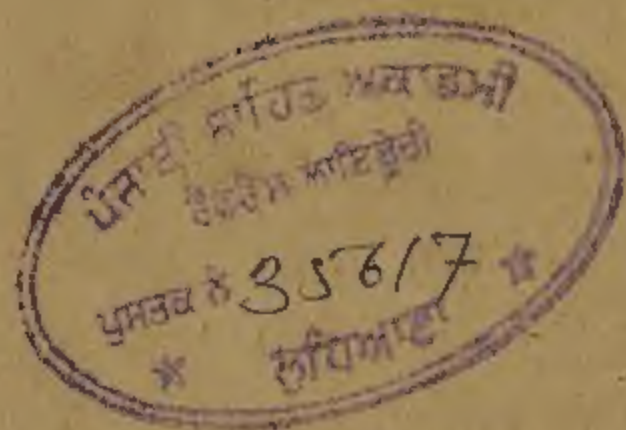 ਪੰਜਾਬੀ ਸਾਹਿਤ ਅਕਾਡਮੀ
ਰੈਫਰੈਂਸ ਲਾਇਬ੍ਰੇਰੀ
ਪੁਸਤਕ ਨੰ 35617
ਲੁਧਿਆਣਾ